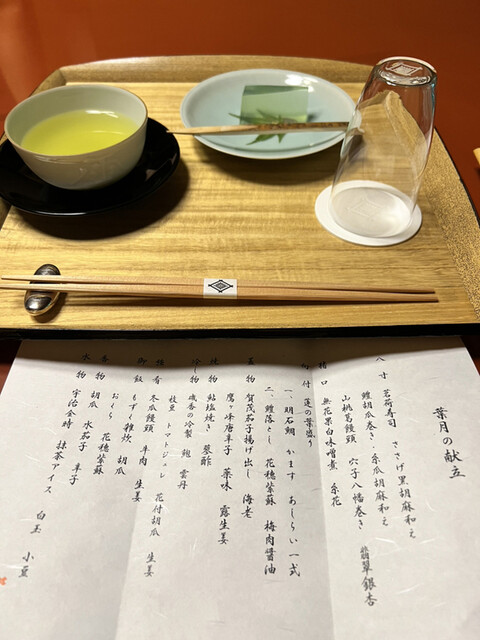 葉月の献立
八寸 茗荷寿司 ささげ黒胡麻和え
鱧胡瓜巻き・糸瓜胡麻和え
山桃葛饅頭 穴子八幡巻き 翡翠銀杏
猪口 無花果白味噌煮 糸花
向付 蓮の葉盛り
一、明石鯛 かます あしらい一式
二、鱧落とし 花穂紫蘇 梅肉醤油
煮物 賀茂茄子揚げ出し 海老
鷹ヶ峰唐辛子 薬味 露生姜
焼物 鮎塩焼き 蓼酢
冷し物 磯香の冷製 鮑 雲丹
枝豆 トマトジュレ 花付胡瓜
強肴 冬瓜饅頭 牛肉 生姜
御飯 もずく雑炊 胡瓜 生姜
おくら 花穂紫蘇
香物 胡瓜 水茄子 辛子
水物 宇治金時 抹茶アイス 白玉 小豆